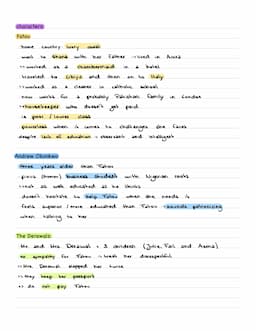 characters
Fatou
- home country ivory coast
- went to Ghana with her father → lived in Accra
→ worked as a chambermaid in a hotel
- travelled to Libya and then on to Italy
→ worked as a cleaner in catholic school
- now works for a probably Pakistani family in London
→ housekeeper who doesn't get paid
- is poor / lower class
- powerless when it comes to challenges she faces
- despite lack of education → observant and intelligent
Andrew Okonkwo
- three years older than Fatou
- business student with Nigerian roots
- not as well educated as he thinks
- doesn't hesitate to help Fatou when she needs it
- feels superior / more educated than Fatou → sounds patronizing
when talking to her
The Derawals
- Mr and Mrs Derawal + 3 children (Julie, Faizul and Asma)
- no sympathy for Fatou → treat her disrespectful
→ Mrs. Derawal slapped her twice
→ they keep her passport
→ do not pay Fatou